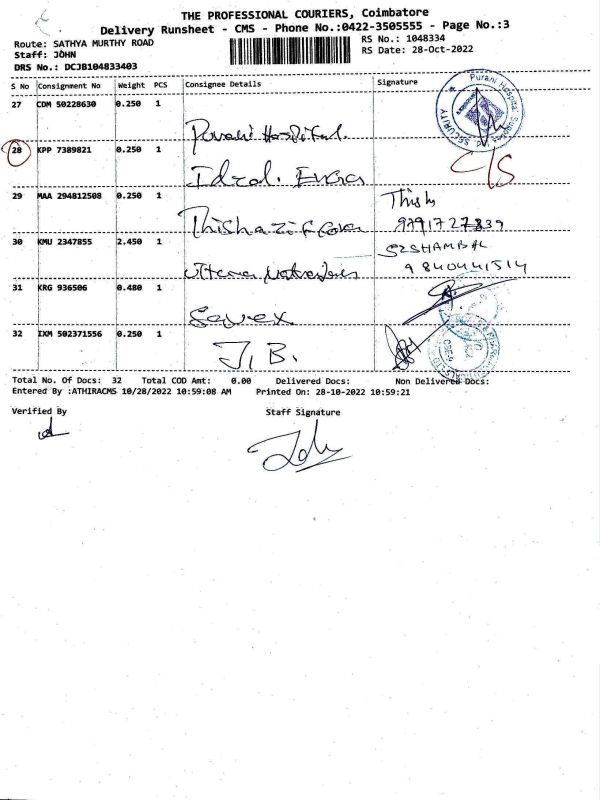 THE PROFESSIONAL COURIERS, Coimbatore
Delivery Runsheet - CMS - Phone No.:0422-3505555 - Page No.:3
Route: SATHYA MURTHY ROAD
RS No.: 1048334
Staff: JOHN
RS Date: 28-Oct-2022
DRS No.: DCJB104833403
S No Consignment No Weight PCS Consignee Details Signature
27 CDM 50228630 0.250 1
Purani Hospital.
Purani Hospital Supplies
SECURITY
28 KPP 7389821 0.250 1
C/S
29 MAA 294812508 0.250 1
9791727839
30 KMU 2347855 2.450 1
9840441514
31 KRG 936506 0.480 1
Savex
32 IXM 502371556 0.250 1
J. B.
Total No. Of Docs: 32 Total COD Amt: 0.00 Delivered Docs: Non Delivered Docs:
Entered By :ATHIRACMS 10/28/2022 10:59:08 AM Printed On: 28-10-2022 10:59:21
Verified By Staff Signature